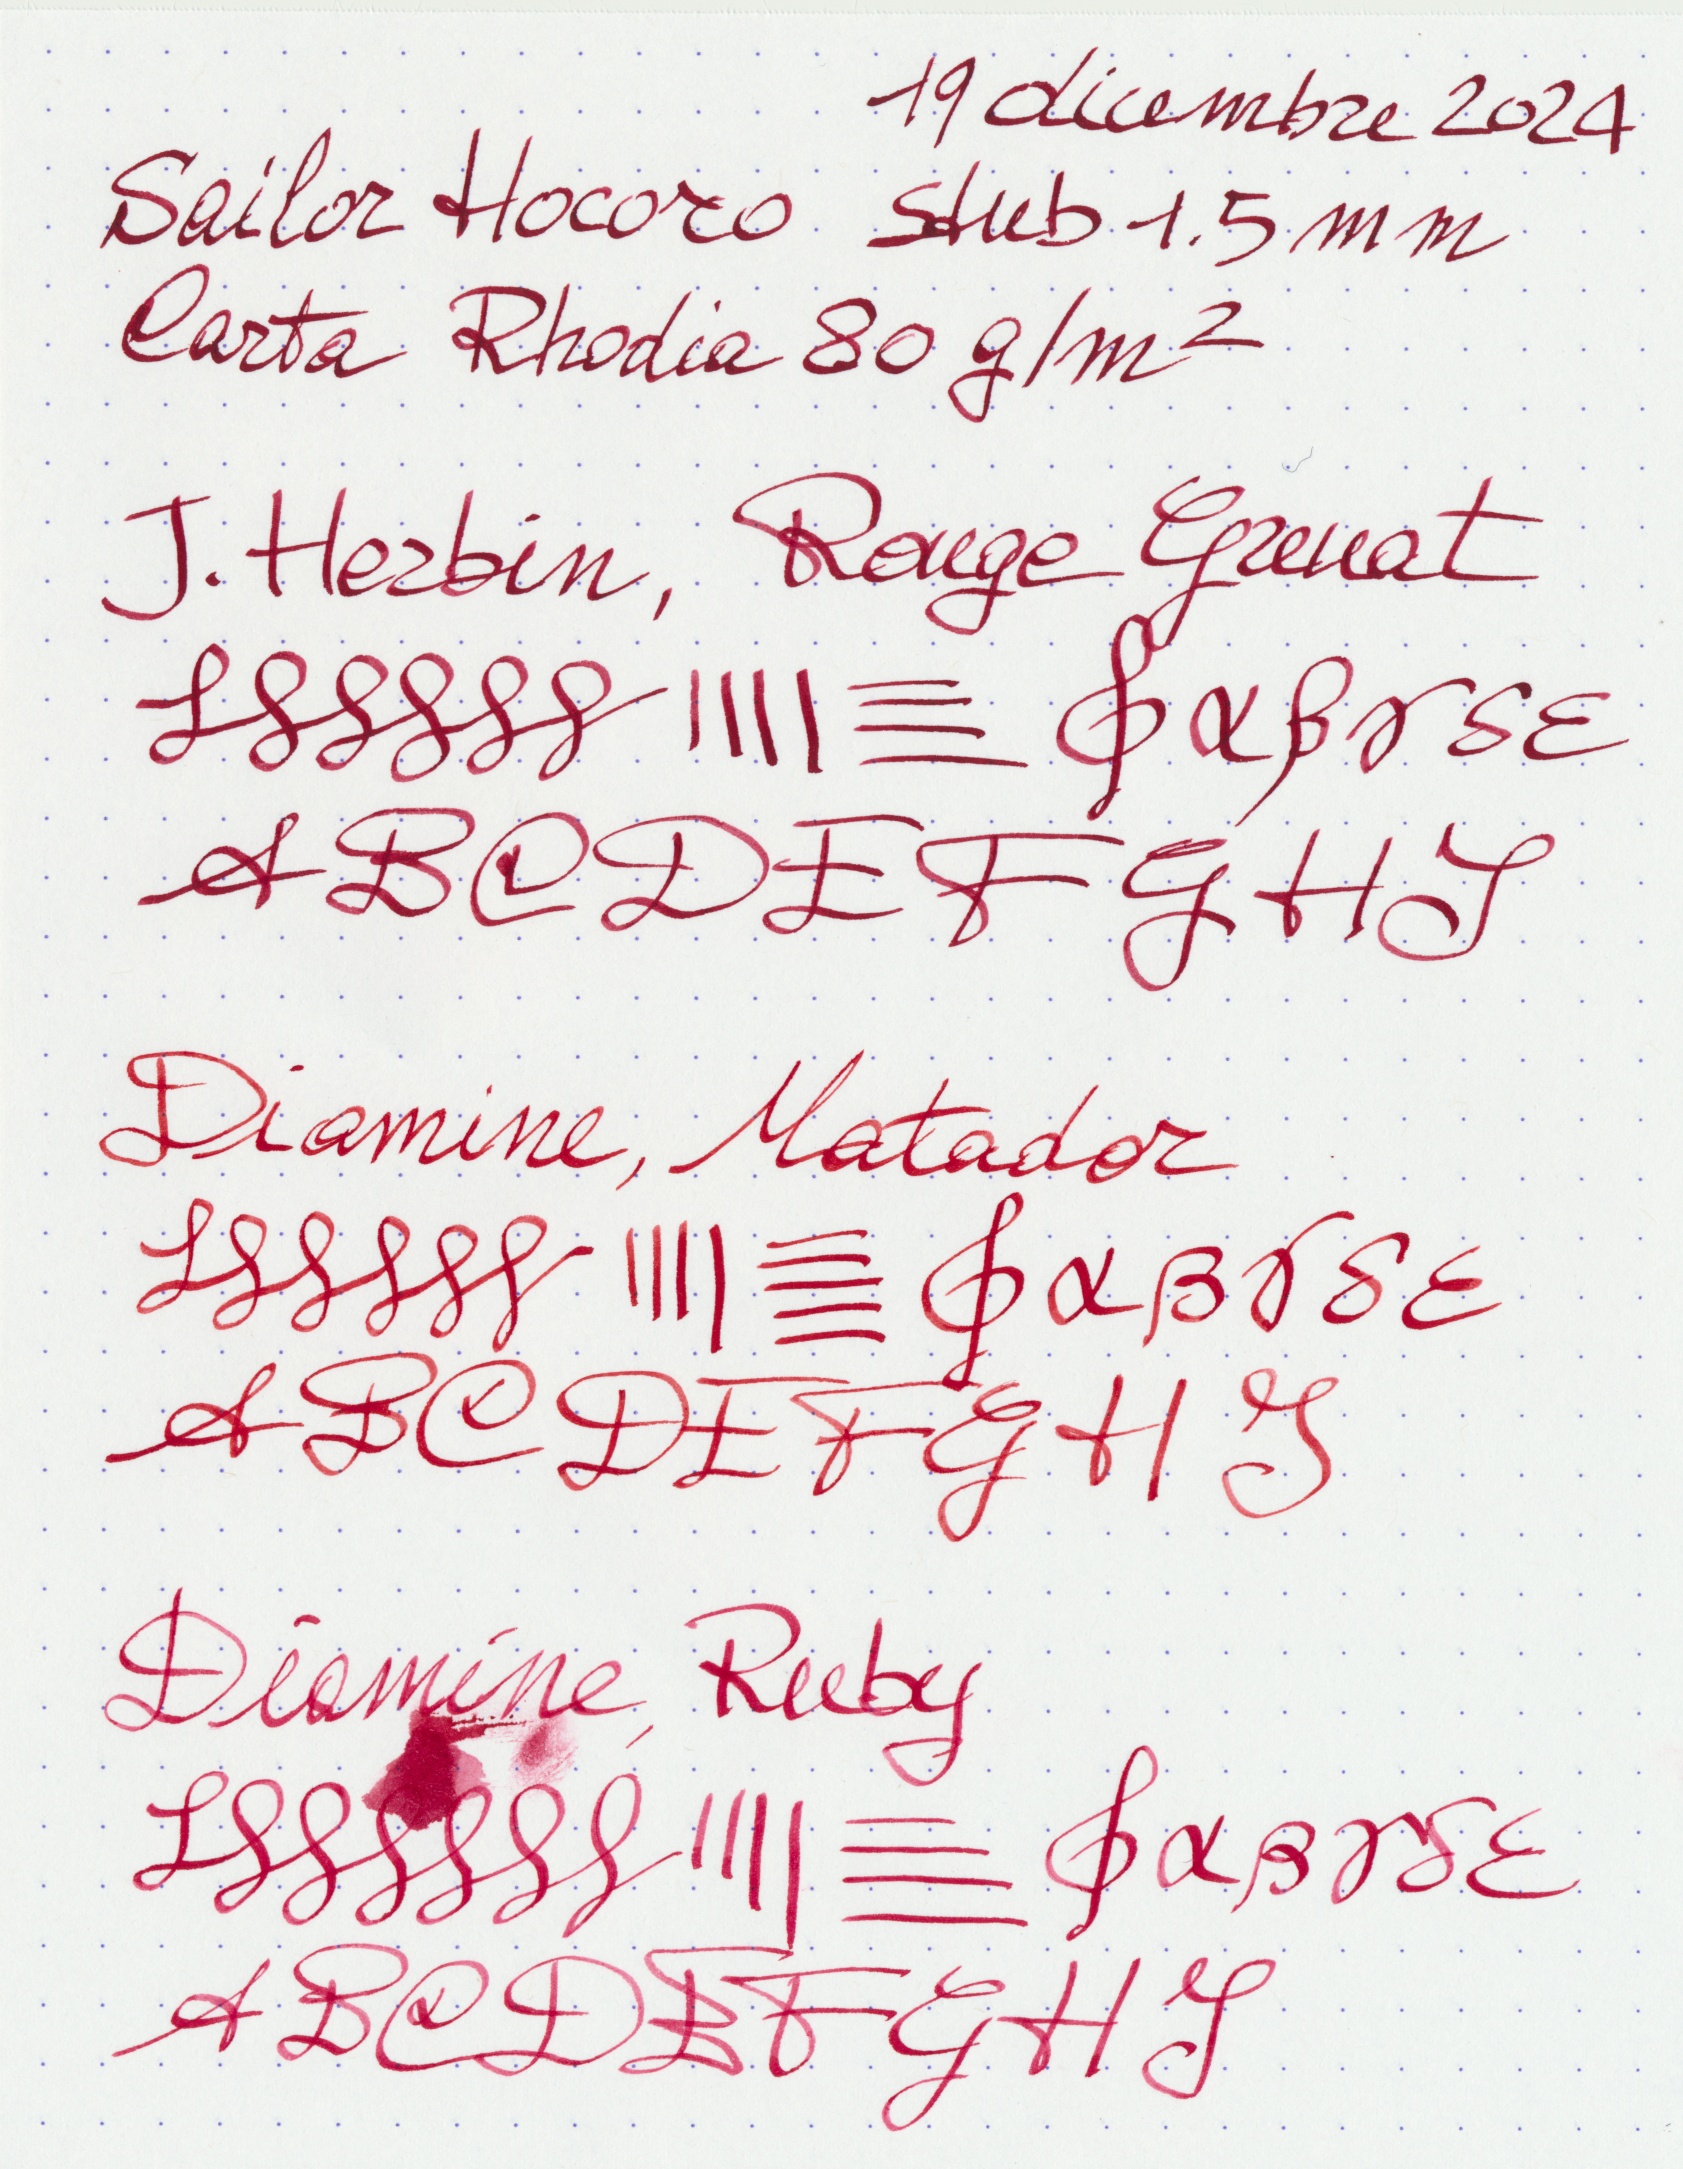 19 dicembre 2024
Sailor Hocoro stub 1.5 mm
Carta Rhodia 80 g/m²
J. Herbin, Rouge Grenat
α β γ δ ε
A B C D E F G H I
Diamine, Matador
α β γ δ ε
A B C D E F G H I
Diamine, Ruby
α β γ δ ε
A B C D E F G H I